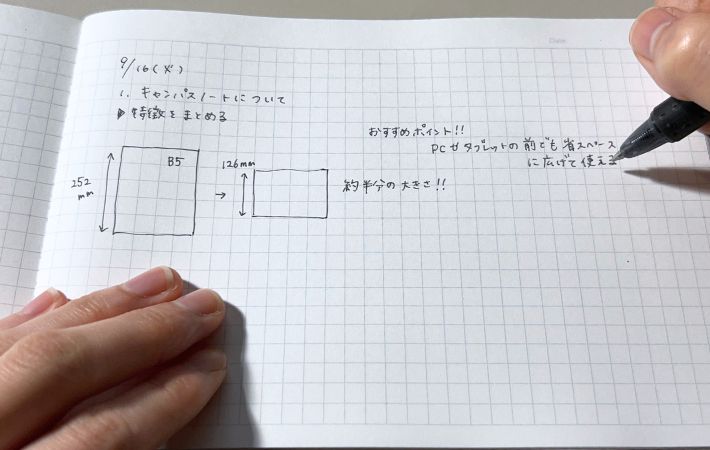 Date
9/16(火)
1. キャンパスノートについて
▶ 特徴をまとめる
おすすめポイント!!
PCやタブレットの前でも省スペース
に広げて使える
B5
252
mm
126mm
→
約半分の大きさ!!